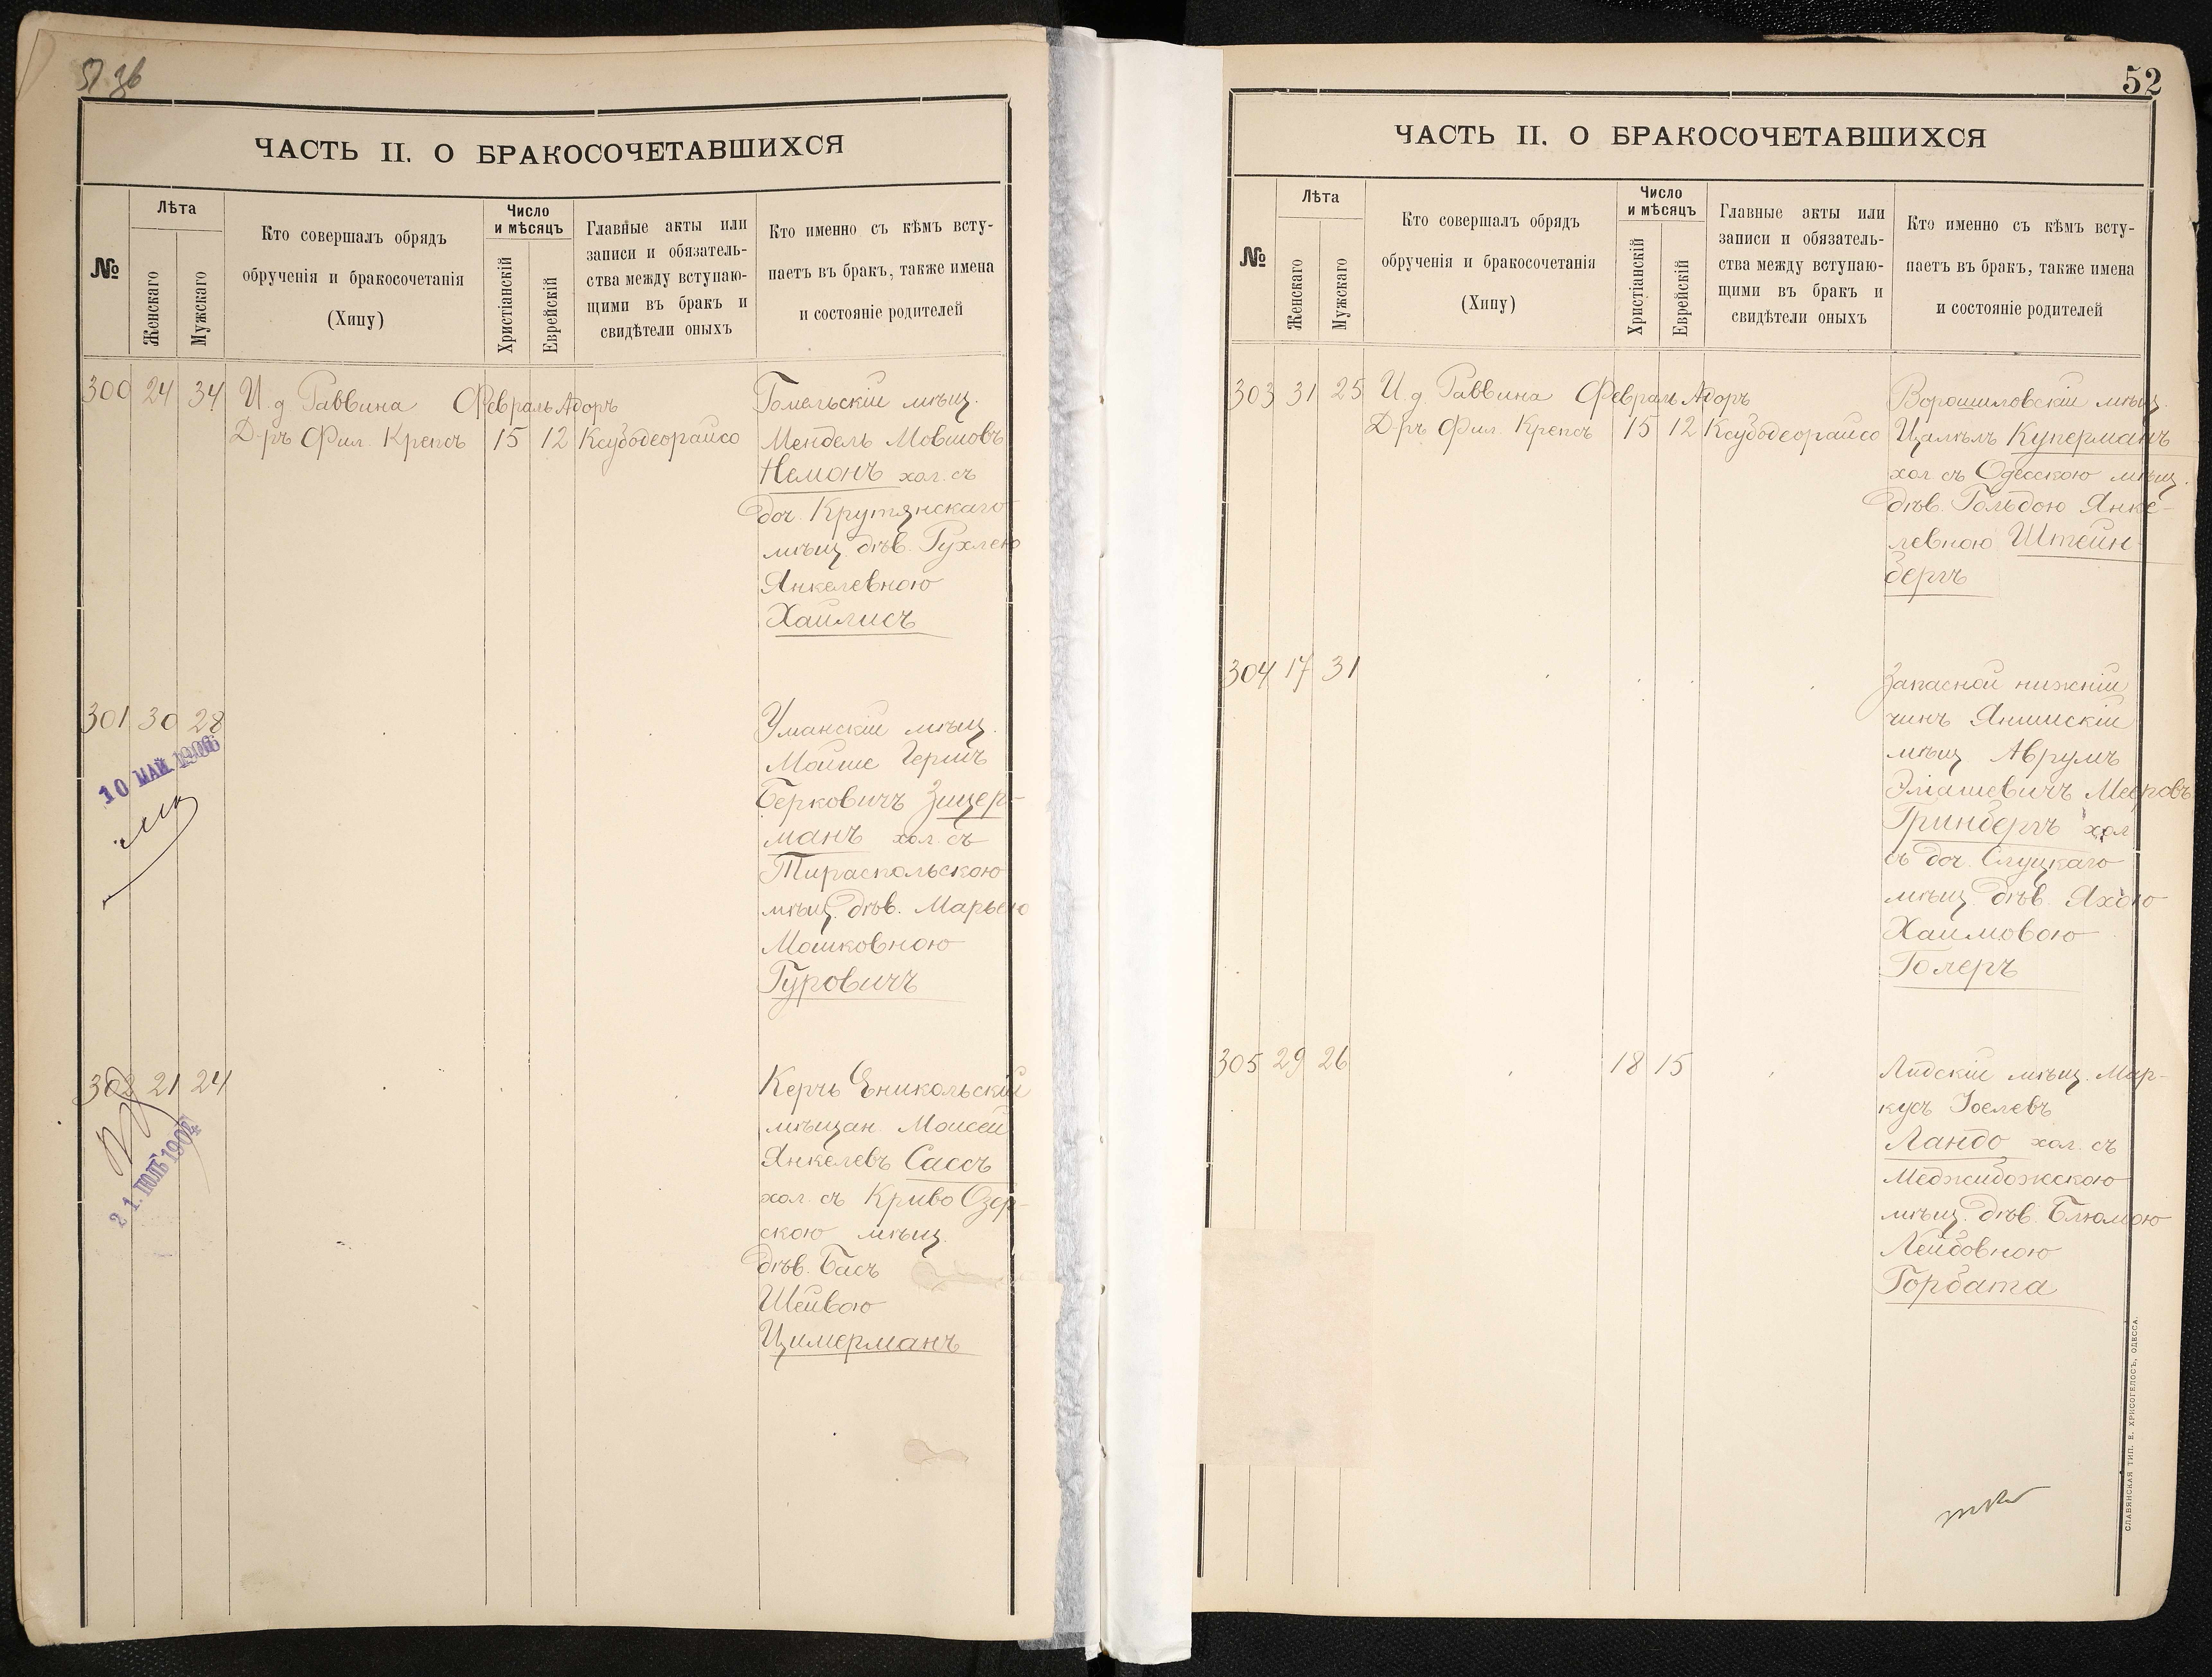 51 зв
ЧАСТЬ II. О БРАКОСОЧЕТАВШИХСЯ
№
Лѣта
Женскаго
Мужскаго
Кто совершалъ обрядъ
обрученія и бракосочетанія
(Хипу)
Число
и мѣсяцъ
Христіанскій
Еврейскій
Главные акты или
записи и обязатель-
ства между вступаю-
щими въ бракъ и
свидѣтели оныхъ
Кто именно съ кѣмъ всту-
паетъ въ бракъ, также имена
и состояніе родителей
300 24 34 И. д. Раввина Февраль Адоръ
Д-ръ Фил. Крепсъ 15 12 Ксубодеорайсо
Гомельскій мѣщ.
Мендель Мовшовъ
Немонъ хол. съ
доч. Крутянскаго
мѣщ. дѣв. Рухлею
Янкелевною
Хайлисъ
301 30 28
10 МАЙ 1906
Уманскій мѣщ.
Мойше Гершъ
Берковичъ Зицер-
манъ хол. съ
Тираспольскою
мѣщ. дѣв. Марьею
Мошковною
Гуровичъ
302 21 24
21 ІЮЛЬ 1904
Керчь Еникольскій
мѣщан. Моисей
Янкелевъ Сассъ
хол. съ Криво Озер-
скою мѣщ.
дѣв. Басъ
Шейвою
Цимерманъ
52
ЧАСТЬ II. О БРАКОСОЧЕТАВШИХСЯ
№
Лѣта
Женскаго
Мужскаго
Кто совершалъ обрядъ
обрученія и бракосочетанія
(Хипу)
Число
и мѣсяцъ
Христіанскій
Еврейскій
Главные акты или
записи и обязатель-
ства между вступаю-
щими въ бракъ и
свидѣтели оныхъ
Кто именно съ кѣмъ всту-
паетъ въ бракъ, также имена
и состояніе родителей
303 31 25 И. д. Раввина Февраль Адоръ
Д-ръ Фил. Крепсъ 15 12 Ксубодеорайсо
Ворошиловскій мѣщ.
Цалкъ Куперманъ
хол. съ Одесскою мѣщ.
дѣв. Гольдою Янке-
левною Штейн-
бергъ
304 17 31
Запасной нижній
чинъ Янишскій
мѣщ. Аврумъ
Эліашевичъ Мееровъ
Гринбергъ хол.
съ доч. Слуцкаго
мѣщ. дѣв. Яхою
Хаимовою
Голеръ
305 29 26 18 15
Лидскій мѣщ. Мар-
кусъ Іоселевъ
Ландо хол. съ
Меджибожскою
мѣщ. дѣв. Блюмою
Лейбовною
Горбата
СЛАВЯНСКАЯ ТИП. Е. ХРИСОГЕЛОСЪ, ОДЕССА.